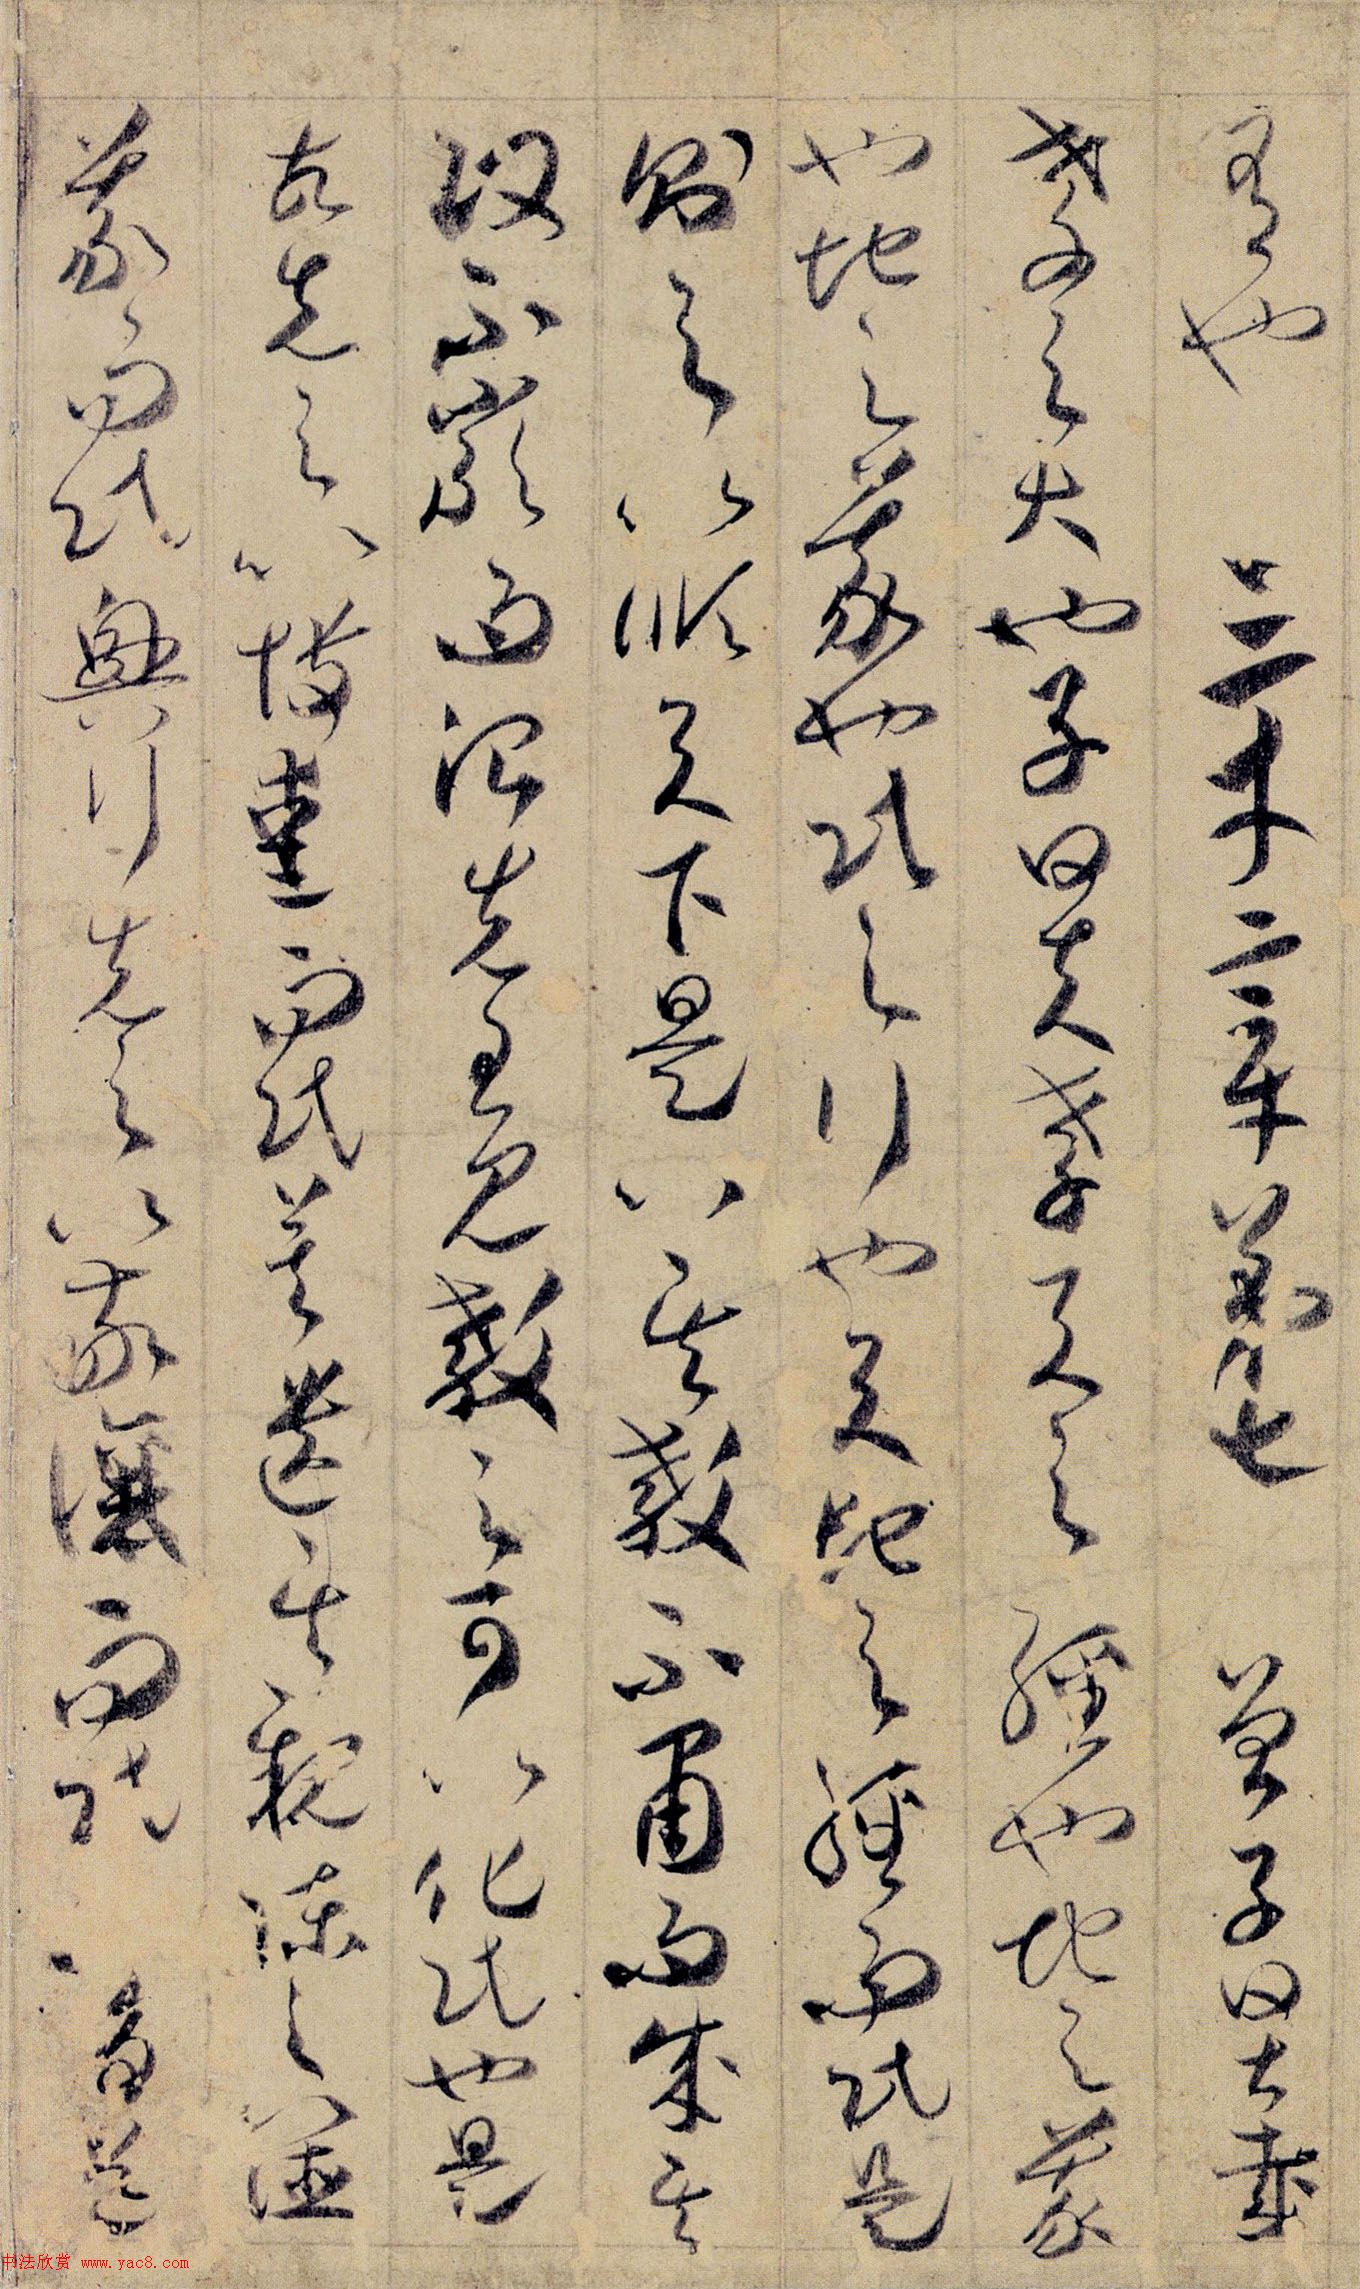 有也 三才章第七 曾子曰甚哉
孝之大也子曰夫孝天之經也地之義
也地之義也民之行也天地之經而民是
則之以順天下是以其教不肅而成其
政不嚴而治先王見教之可以化民也是
故先之以博愛而民莫遺其親陳之以德
義而民興行先之以敬讓而民
书法欣赏 www.yac8.com